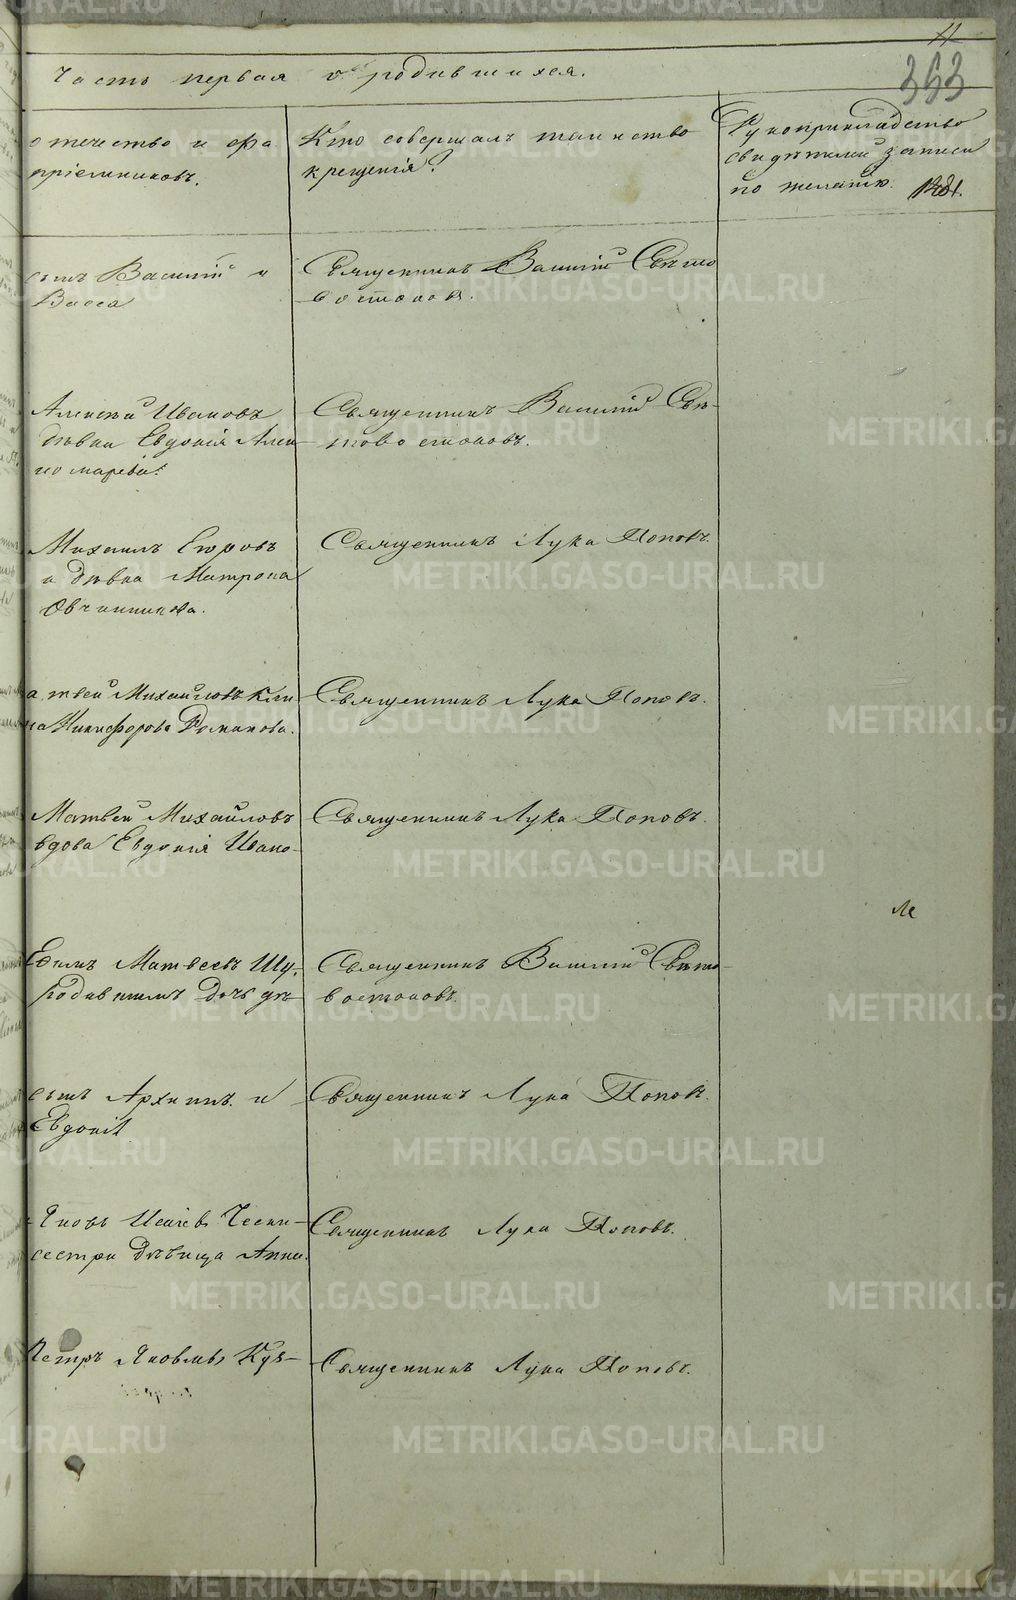 11
353
Часть первая о родившихся.
отечество и фа
пріемниковъ.
Кто совершалъ таинство
крещенія?
Рукоприкладство
свидѣтелей записи
по желанію.
сынъ Василій и
Васса
Священникъ Василій Свѣто
востоковъ.
Алексѣй Ивановъ
дѣвка Евдокія Алек
Священникъ Василій Свѣ-
товостоковъ.
Михаилъ Егоровъ
и дѣвка Матрона
Овчинникова.
Священникъ Лука Поповъ.
атвей Михайловъ Кли
на Никифорова Романова.
Священникъ Лука Поповъ.
Матвей Михайловъ
вдова Евдокія Ивано-
Священникъ Лука Поповъ.
Ефимъ Матвеевъ Шу
родившимъ дочь дѣ
Священникъ Василій Свѣто-
востоковъ.
сынъ Архипъ и
Евдокія
Священникъ Лука Поповъ.
Яковъ Исаіевъ Чеки-
сестра дѣвица Анна.
Священникъ Лука Поповъ.
Петръ Яковлевъ Куз-
Священникъ Лука Поповъ.
METRIKI.GASO-URAL.RU